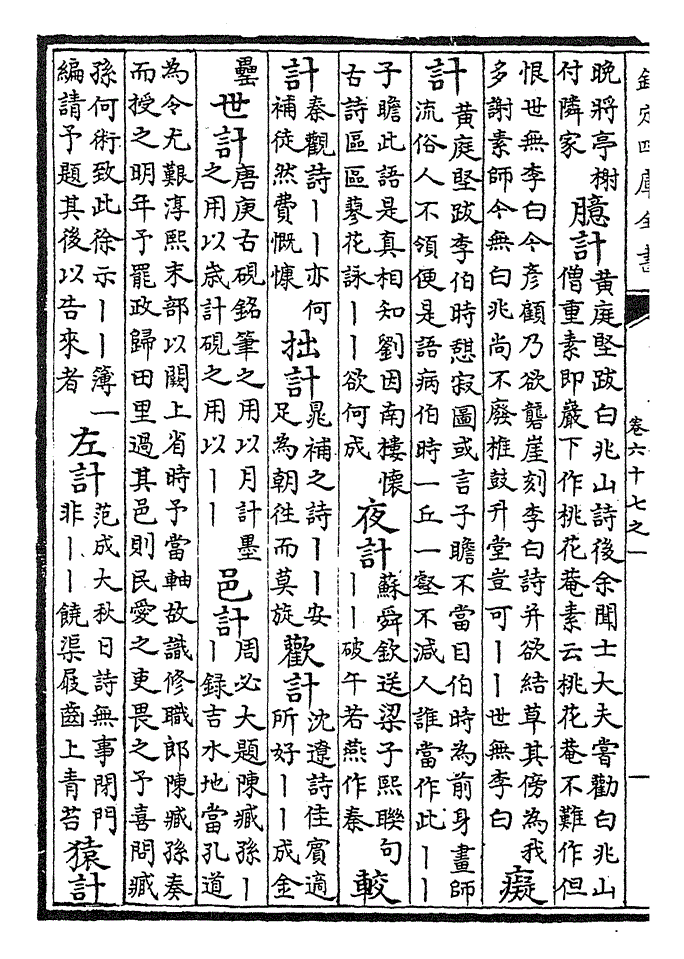 欽定四庫全書
卷六十七之一
一
晩將亭榭
付隣家
臆計
黃庭堅跋白兆山詩後余聞士大夫嘗勸白兆山
僧重素即巖下作桃花菴素云桃花菴不難作但
恨世無李白今彦顧乃欲礱崖刻李白詩并欲結草其傍為我
多謝素師今無白兆尚不廢椎鼓升堂豈可丨丨世無李白
癡
計
黃庭堅跋李伯時憩寂圖或言子瞻不當目伯時為前身畫師
流俗人不領便是語病伯時一丘一壑不減人誰當作此丨丨
子瞻此語是真相知劉因南樓懷
古詩區區蓼花詠丨丨欲何成
夜計
蘇舜欽送梁子熙聨句
丨丨破午若燕作秦
較
計
秦觀詩丨丨亦何
補徒然費慨慷
拙計
晁補之詩丨丨安
足為朝徃而莫旋
歡計
沈遼詩佳賓適
所好丨丨成金
罍
世計
唐庚古硯銘筆之用以月計墨
之用以歳計硯之用以丨丨
邑計
周必大題陳臧孫丨
丨録吉水地當孔道
為令尤艱淳熙末部以闕上省時予當軸故識修職郎陳臧孫奏
而授之明年予罷政歸田里過其邑則民愛之吏畏之予喜問臧
孫何術致此徐示丨丨簿一
編請予題其後以告來者
左計
范成大秋日詩無事閉門
非丨丨饒渠屐齒上青苔
猿計